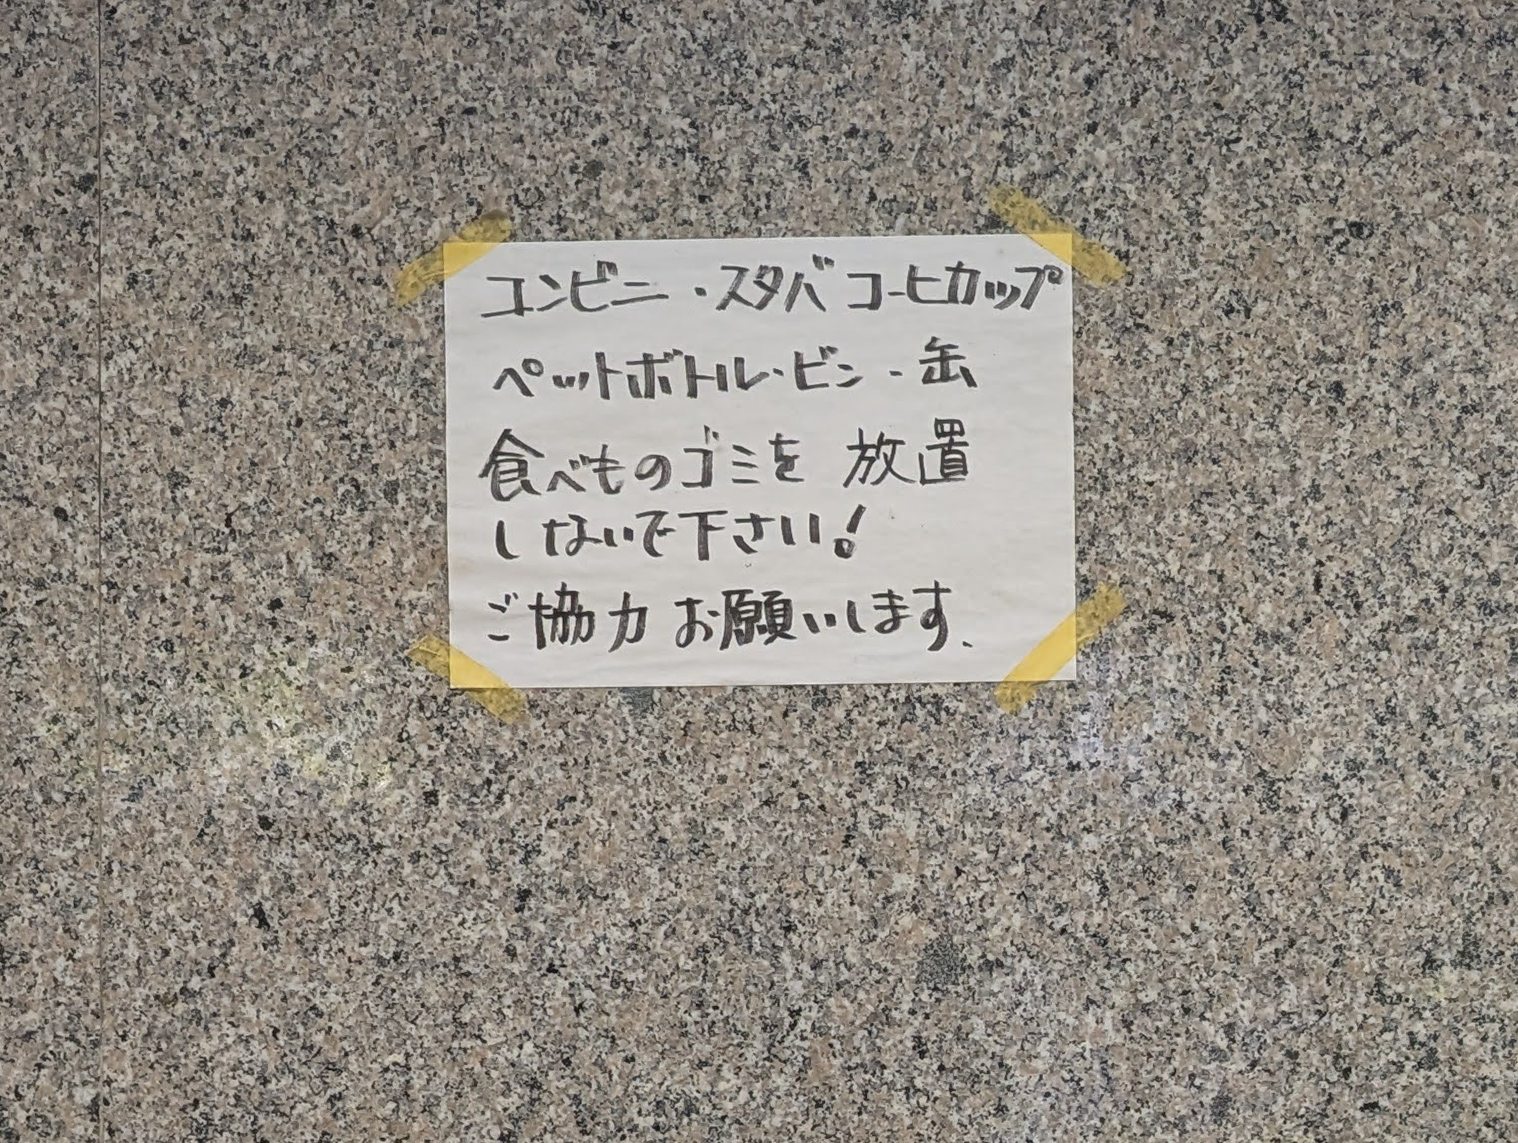 コンビニ・スタバ コーヒカップ
ペットボトル・ビン・缶
食べものゴミを 放置
しないで下さい!
ご協力 お願いします、